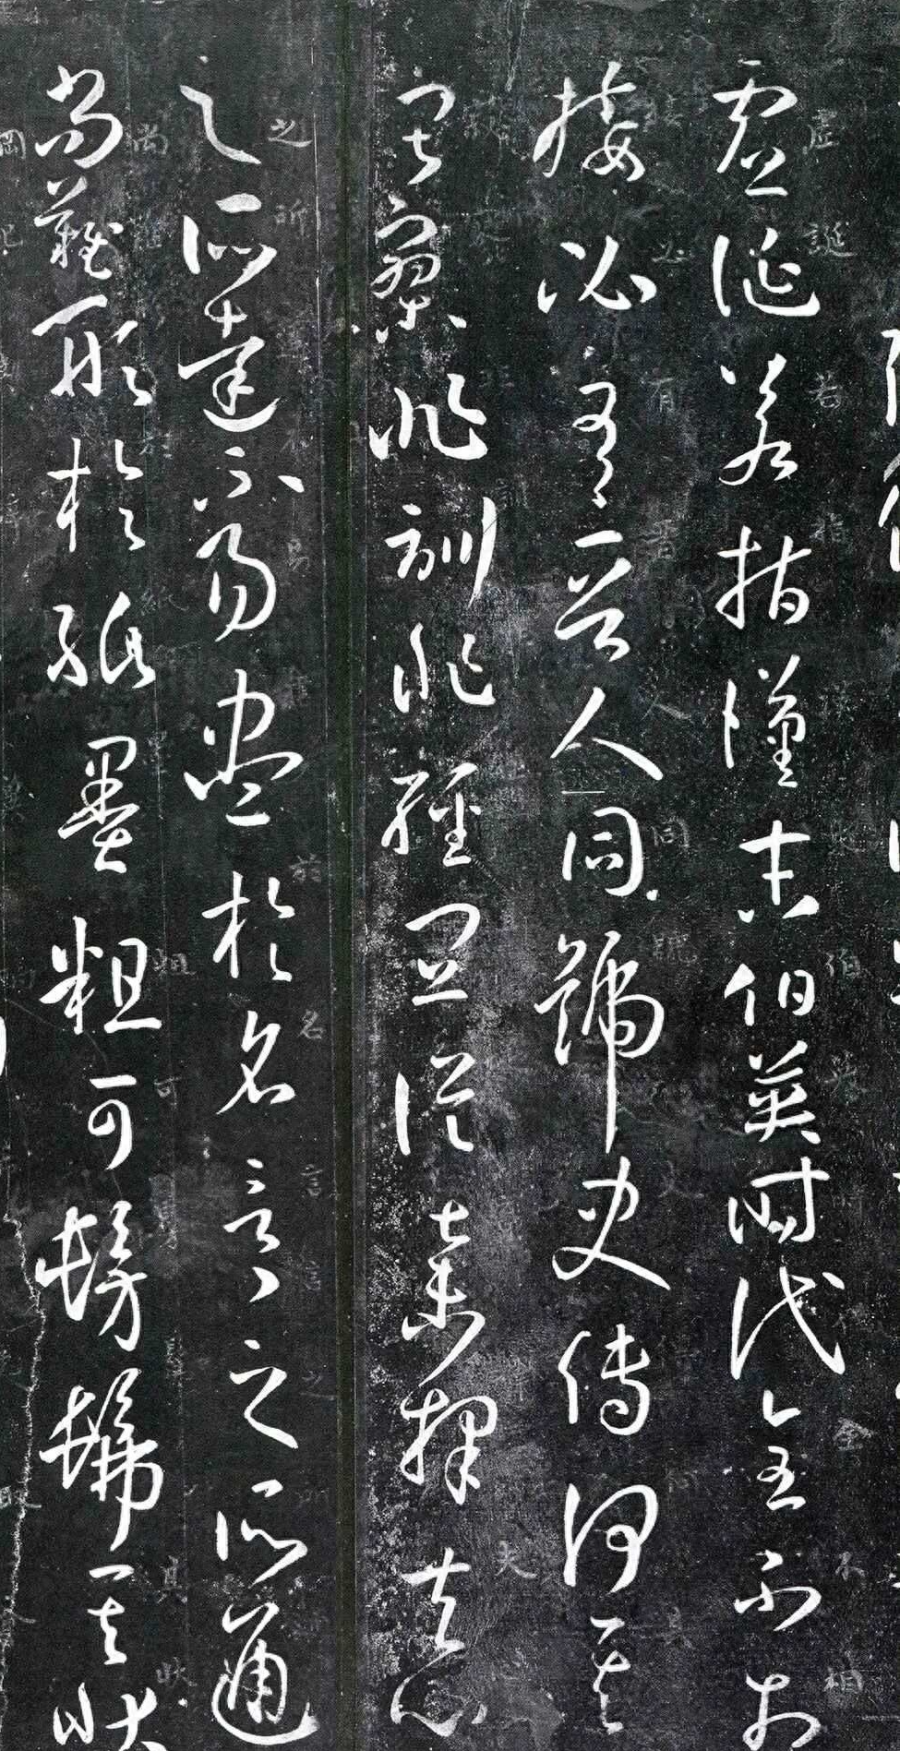 虛誕若指漢末伯英時代全不相
接必有晉人同號史傳何其
寂寥非訓非經宜從棄擇夫心
之所達不易盡於名言言之所通
尚難形於紙墨粗可髣髴其狀